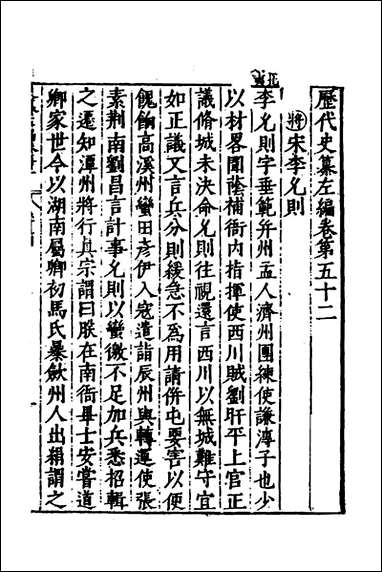 歷代史纂左編卷第五十二
將宋李允則
李允則字垂範并州孟人濟州團練使謙溥子也少
以材畧聞蔭補衙内指揮使西川賊劉旰平上官正
議脩城未決命允則往視還言西川以無城難守宜
如正議又言兵分則緩急不爲用請併屯要害以便
餽餉高溪州蠻田彦伊入寇遣詣辰州與轉運使張
素荆南劉昌言計事允則以蠻徼不足加兵悉招輯
之遷知潭州將行真宗謂曰朕在南衙畢士安嘗道
卿家世今以湖南屬卿初馬氏暴斂州人出絹謂之